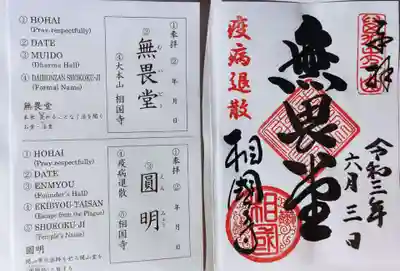 ① BOHAI
(Pray respectfully)
② DATE
③ MUIDO
(Dharma Hall)
④ DAIHONZAN SHOKOKU-JI
(Formal Name)
無畏堂
① HOHAI
(Pray respectfully)
② DATE
③ ENMYOU
(Founder's Hall)
④ EKIBYOU-TAISAN
(Escape from the Plague)
⑤ SHOKOKU-JI
(Temple's Name)
圓明
①奉拝 ②年月日
③
無畏堂
④大本山 相国寺
①奉拝 ②年月日
③
圓明
えん みょう
④疫病退散
⑤相国寺
奉拝
無畏堂
疫病退散
相国寺
令和三年
六月三日